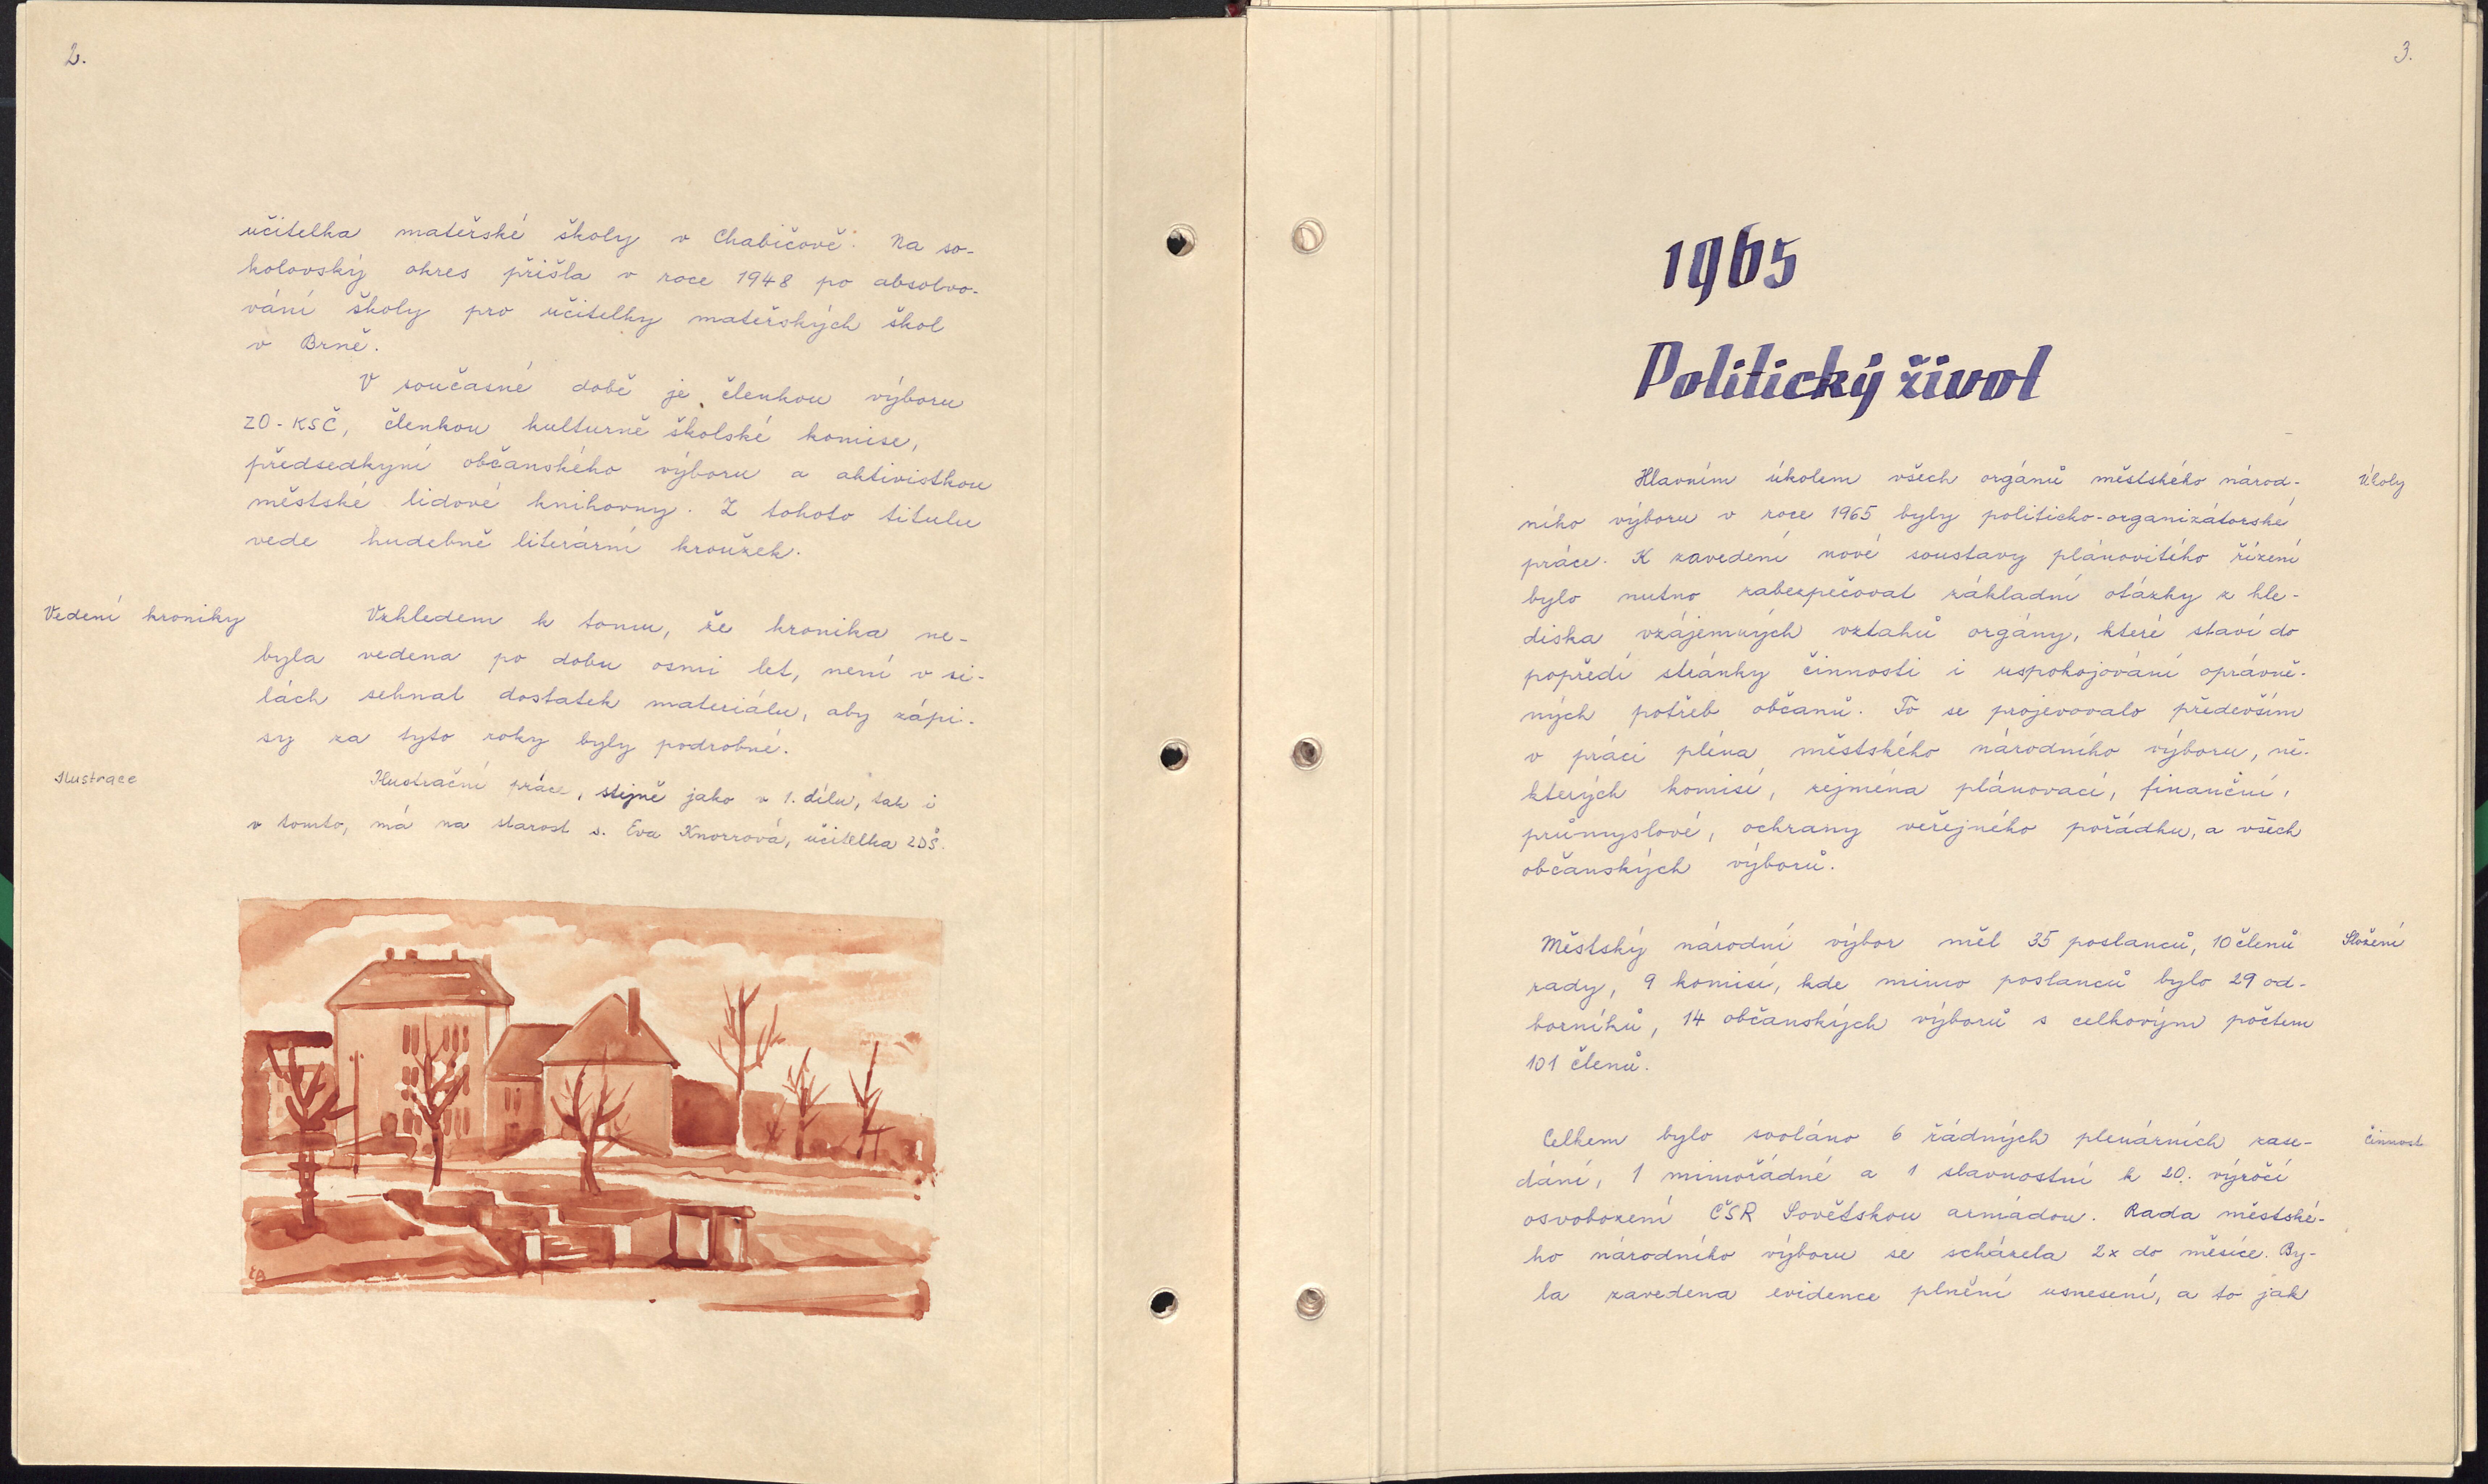 2.
učitelka mateřské školy v Chabičově. Na so-
kolovský okres přišla v roce 1948 po absolvo-
vání školy pro učitelky mateřských škol
v Brně.
V současné době je členkou výboru
ZO-KSČ, členkou kulturně školské komise,
předsedkyní občanského výboru a aktivistkou
městské lidové knihovny. Z tohoto titulu
vede hudebně literární kroužek.
Vedení kroniky
Vzhledem k tomu, že kronika ne-
byla vedena po dobu osmi let, není v si-
lách sehnat dostatek materiálu, aby zápi-
sy za tyto roky byly podrobné.
Ilustrace
Ilustrační práce, stejně jako v 1. dílu, tak i
v tomto, má na starost s. Eva Knorrová, učitelka ZDŠ.
3.
1965
Politický život
Hlavním úkolem všech orgánů městského národ-
ního výboru v roce 1965 byly politicko-organizátorské
práce. K zavedení nové soustavy plánovitého řízení
bylo nutno zabezpečovat základní otázky z hle-
diska vzájemných vztahů orgány, které staví do
popředí stránky činnosti i uspokojování oprávně-
ných potřeb občanů. To se projevovalo především
v práci pléna městského národního výboru, ně-
kterých komisí, zejména plánovací, finanční,
průmyslové, ochrany veřejného pořádku, a všech
občanských výborů.
Úkoly
Městský národní výbor měl 35 poslanců, 10 členů
rady, 9 komisí, kde mimo poslanců bylo 29 od-
borníků, 14 občanských výborů s celkovým počtem
101 členů.
Složení
Celkem bylo svoláno 6 řádných plenárních zase-
dání, 1 mimořádné a 1 slavnostní k 20. výročí
osvobození ČSR Sovětskou armádou. Rada městské-
ho národního výboru se scházela 2x do měsíce. By-
la zavedena evidence plnění usnesení, a to jak
Činnost